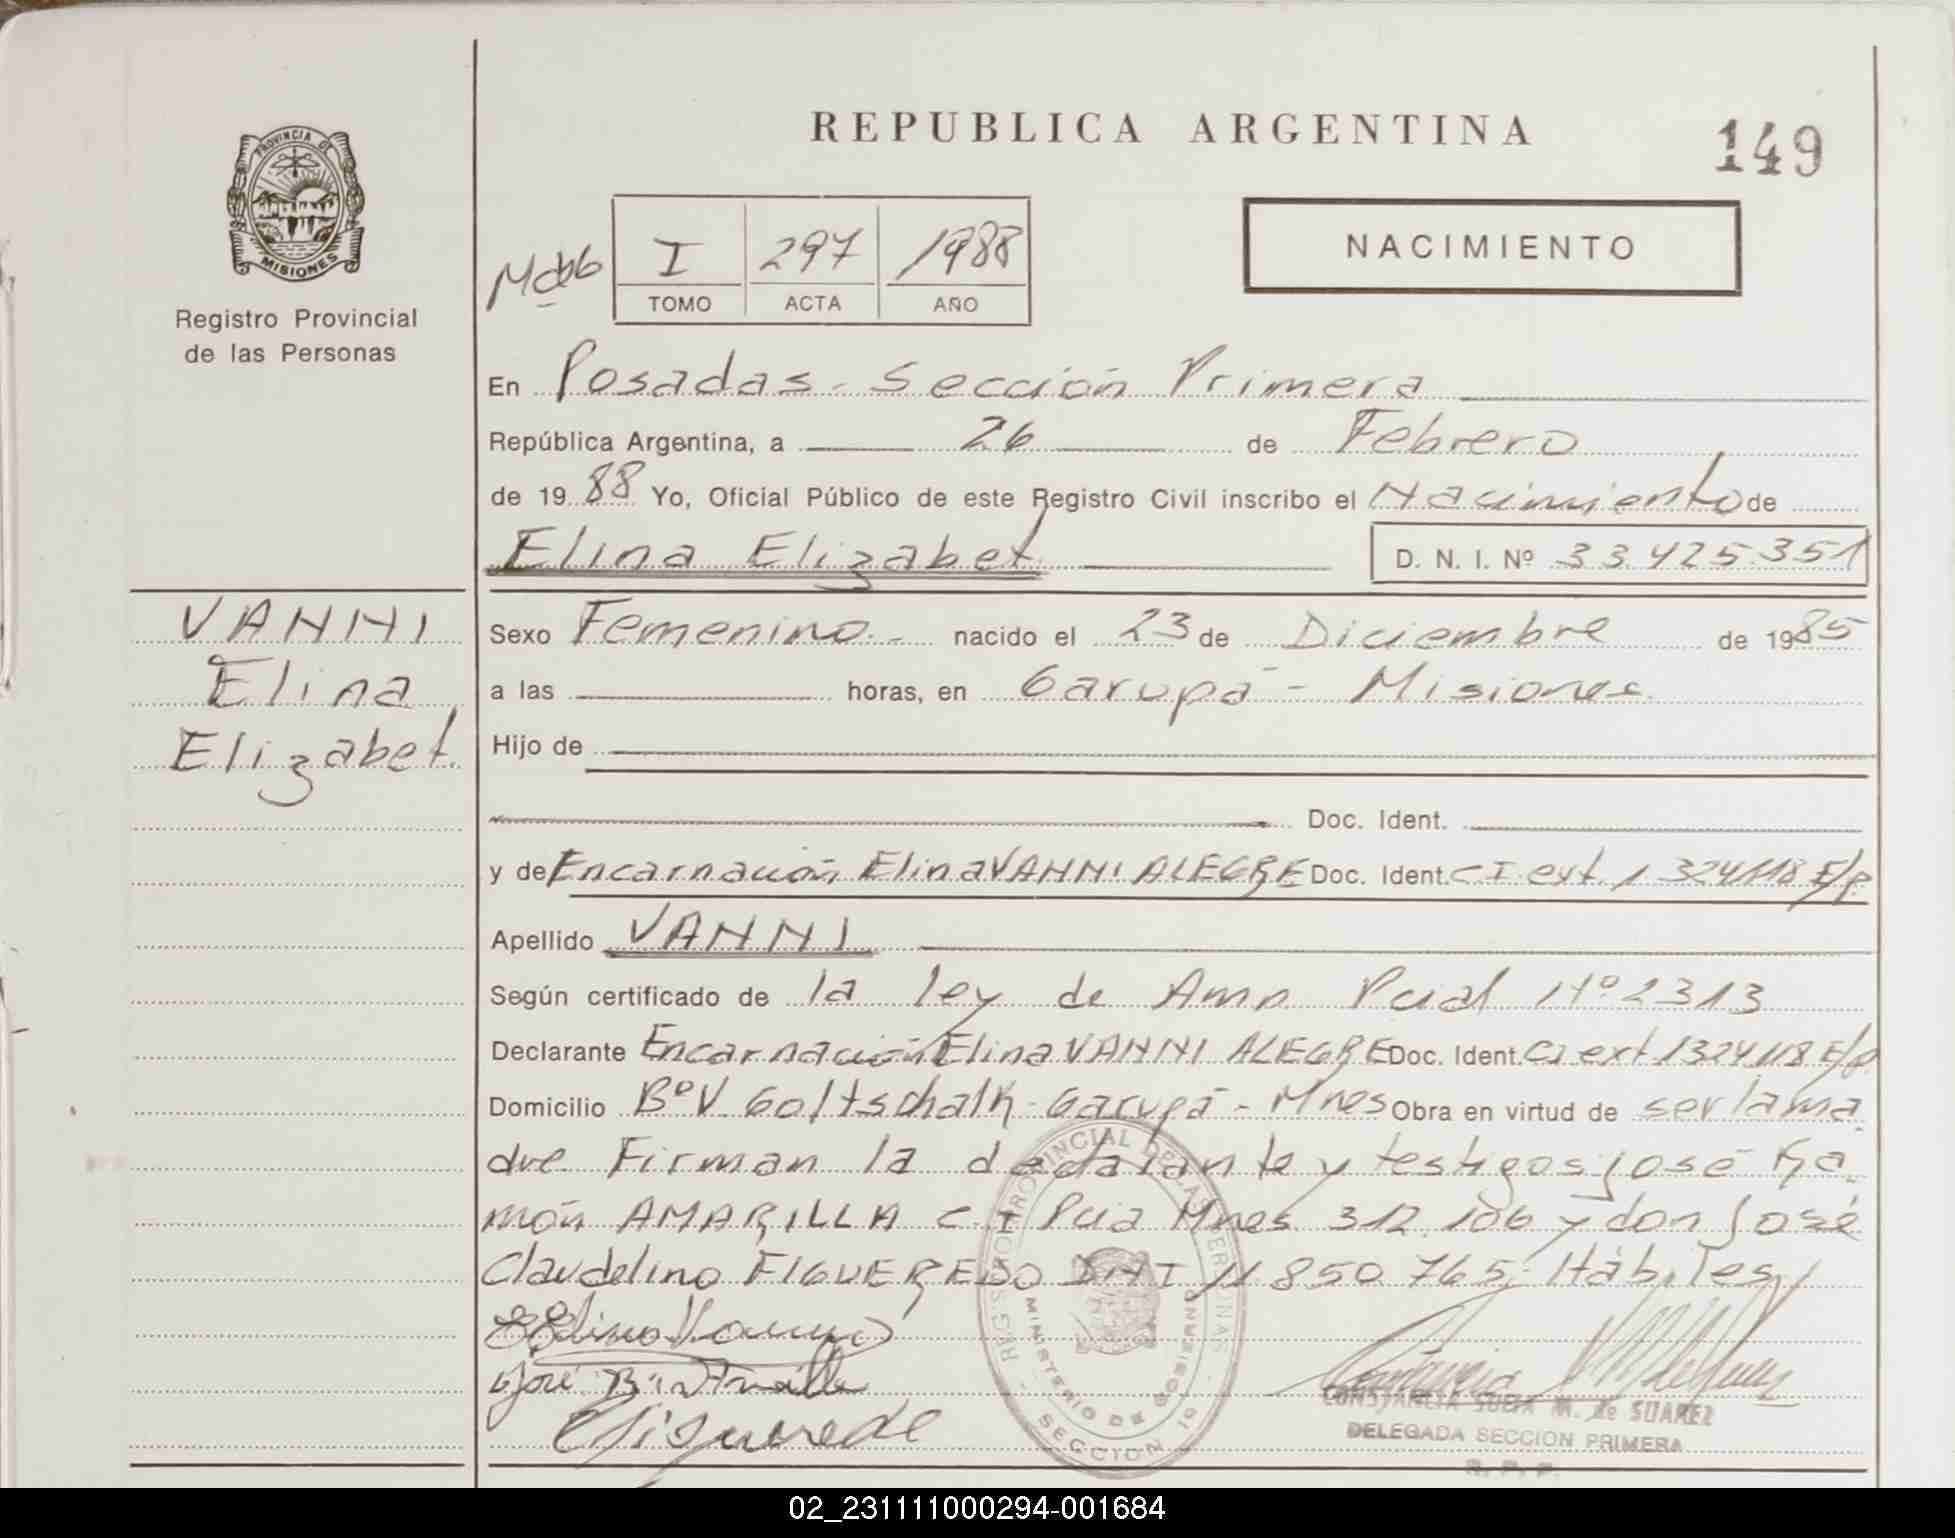 REPUBLICA ARGENTINA
149
PROVINCIA DE
MISIONES
Registro Provincial
de las Personas
I 297 1988
TOMO ACTA AÑO
NACIMIENTO
En Posadas - Sección Primera
República Argentina, a 26 de Febrero
de 1988 Yo, Oficial Público de este Registro Civil inscribo el Nacimiento de
Elina Elizabet D. N. I. Nº 33.425.351
VANNI
Elina
Elizabet.
Sexo Femenino.- nacido el 23 de Diciembre de 1985
a las horas, en Garupá - Misiones.
Hijo de
Doc. Ident.
y de Encarnación Elina VANNI ALEGRE Doc. Ident. C I ext. 1 324118 E/p.
Apellido VANNI
Según certificado de la ley de Amn Pcial Nº 2313
Declarante Encarnación Elina VANNI ALEGRE Doc. Ident. CI ext 1324118 E/p
Domicilio Bº V. Goltschalk - Garupá - Mnes Obra en virtud de ser la ma
dre Firman la declarante y testigos: José Ra-
món AMARILLA C. I Pcia Mnes 312.106 y don José
Claudelino FIGUEREDO DNI 11850765, Hábiles/
REGISTRO PROVINCIAL DE LAS PERSONAS
MINISTERIO DE GOBIERNO
SECCION 1º
CONSTANCIA M. de SUAREZ
DELEGADA SECCION PRIMERA
R. P. P.
02_231111000294-001684